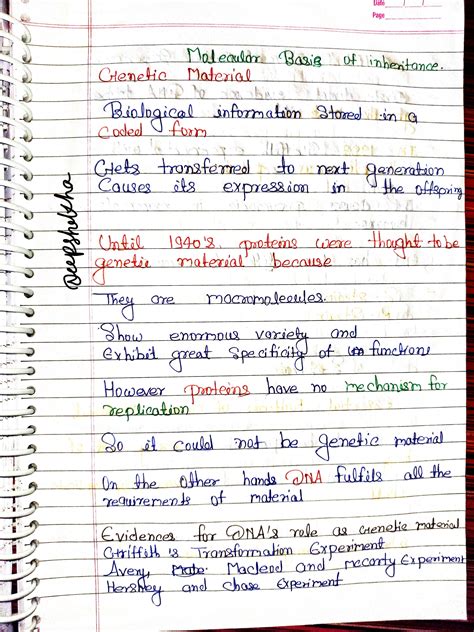 Date / /
Page
Molecular Basis of inheritance.
Genetic Material
Biological information Stored in a
Coded form
Gets transferred to next generation
Causes its expression in the offspring
Deepshekha
Until 1940's, proteins were thought to be
genetic material because
They are macromolecules.
Show enormous variety and
Exhibit great Specificity of functions
However proteins have no mechanism for
replication
So it could not be genetic material
On the Other hands DNA fulfils all the
requirements of material
Evidences for DNA's role as Genetic material
Griffith's Transformation Experiment
Avery, Macleod and mccarty Experiment
Hershey and chase Experiment